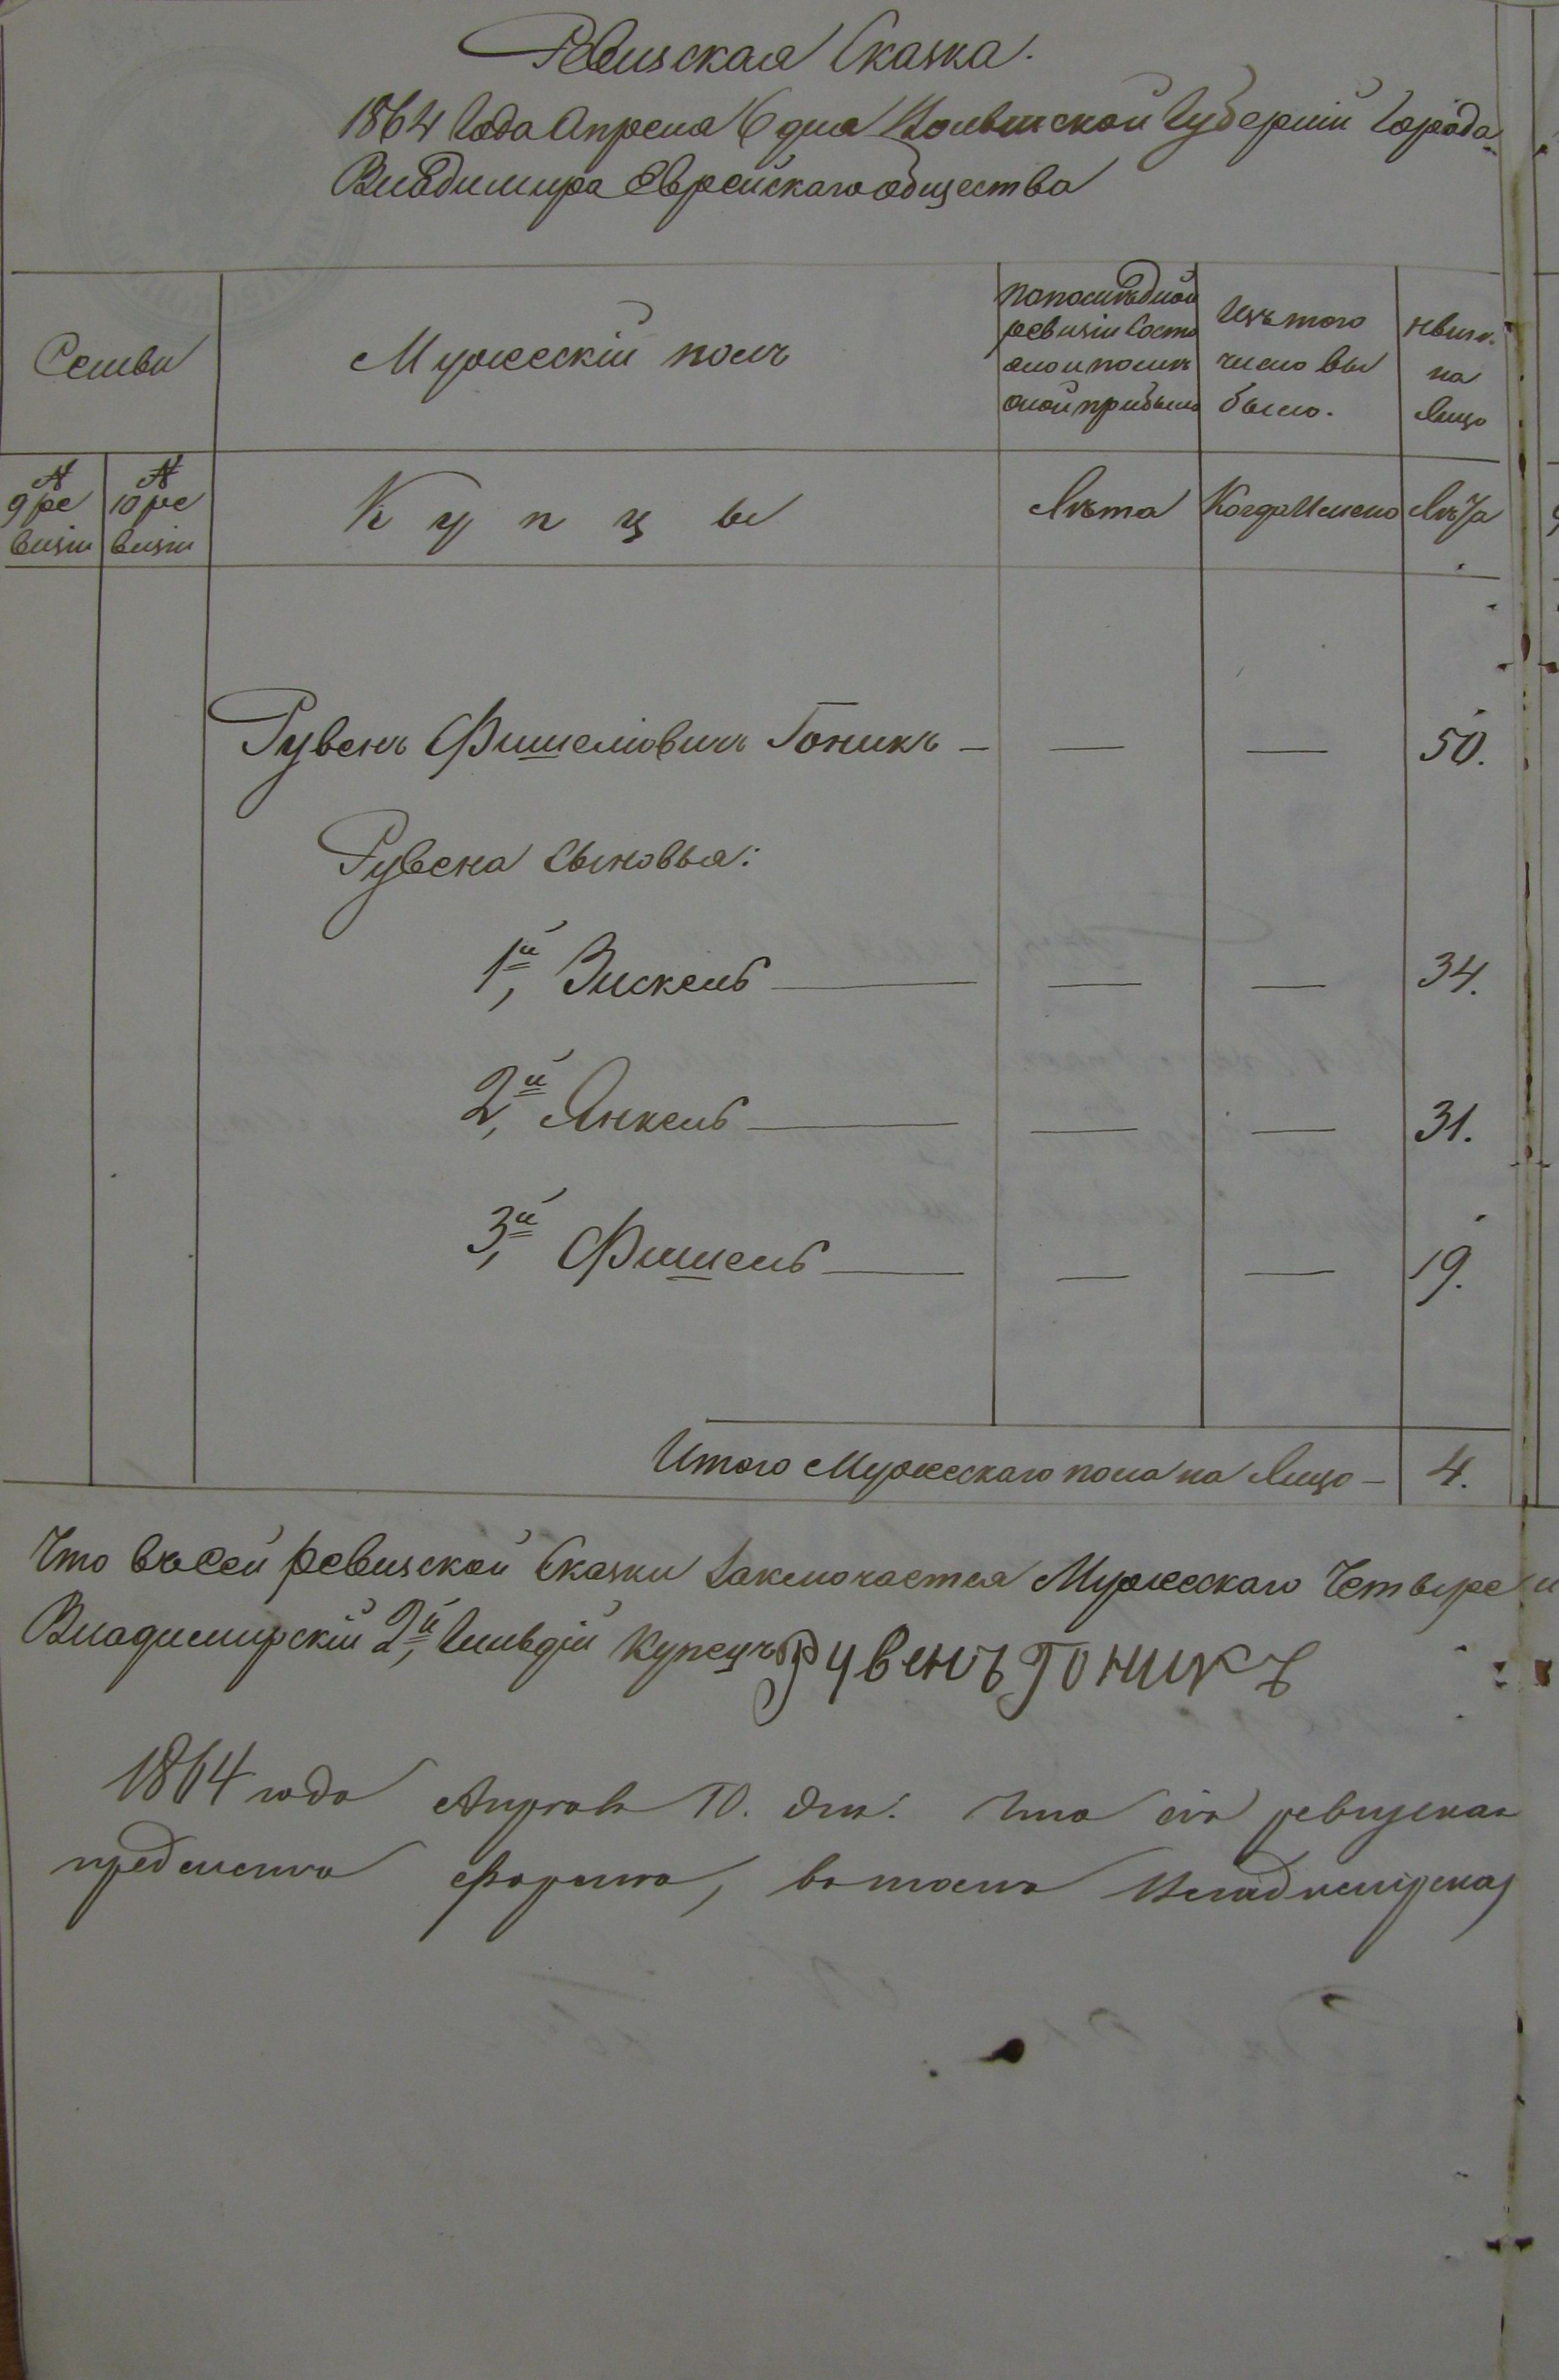 Ревизская Сказка.
1864 Года Апреля 6 дня Волынской Губерніи Города
Владимира Еврейскаго общества
Семьи
Мужескій полъ
По последной
ревизіи состо
яло и послѣ
оной прибыло
Изъ того
число вы
было.
ныне
на
Лицо
№
9 ре
визіи
№
10 ре
визіи
Купцы
Лѣта
Когда Именно
Лѣта
Рувенъ Фишеліовичъ Гоникъ — — — 50.
Рувена Сыновья:
1й, Зискель — — — 34.
2й, Янкель — — — 31.
3й, Фишель — — — 19.
Итого Мужескаго пола на Лицо — 4.
Что въ сей ревизской Сказки Заключается Мужескаго Четыре и
Владимирскій 2й, Гильдій Купецъ Рувенъ Гоникъ
1864 года Апреля 10. дня. Что сія ревизская
форма, въ томъ Владимирская